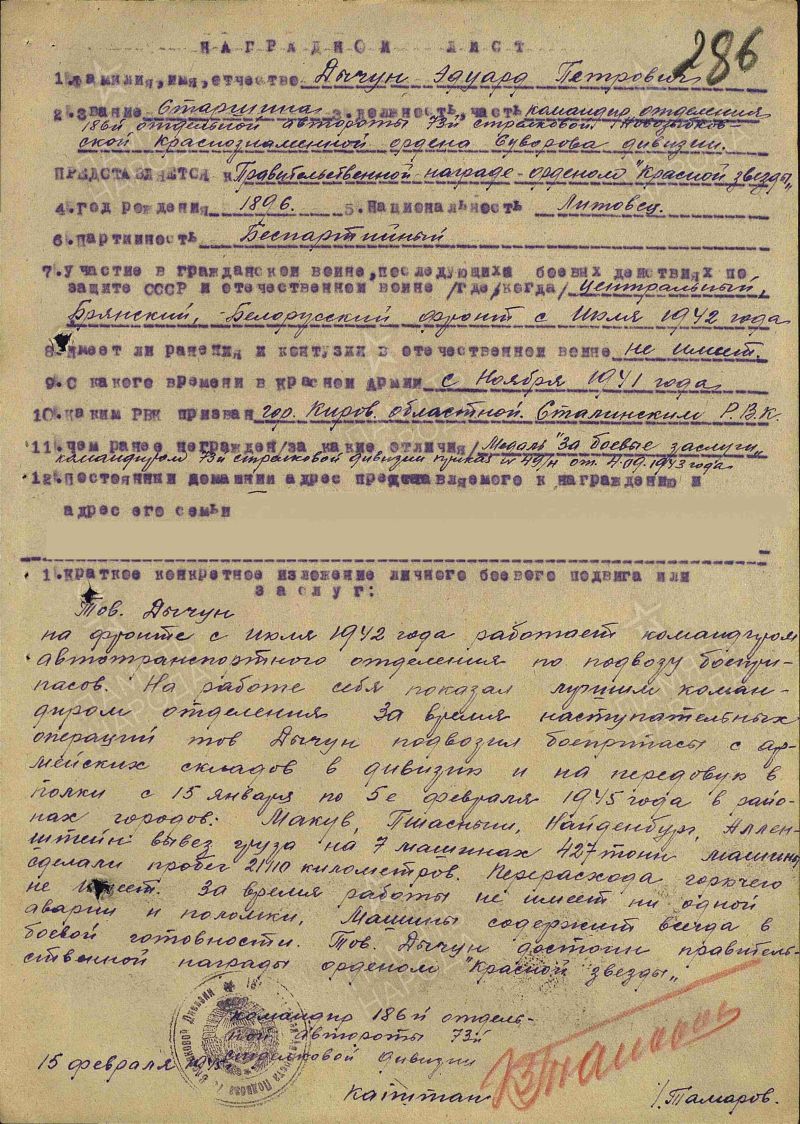 286
НАГРАДНОЙ ЛИСТ
1. Фамилия, имя, отчество Дычун Эдуард Петрович
2. Звание Старшина 3. Должность, часть командир отделения
186й отдельной автороты 73й стрелковой Новозыбков-
ской краснознаменной ордена Суворова дивизии.
ПРЕДСТАВЛЯЕТСЯ к Правительственной награде - орденом "Красной звезды"
4. Год рождения 1896. 5. Национальность Литовец.
6. Партийность Беспартийный
7. Участие в гражданской войне, последующих боевых действиях по
защите СССР и отечественной войне /где, когда/ Центральный,
Брянский, - Белорусский фронт с Июля 1942 года
8. Имеет ли ранения и контузии в отечественной войне не имеет.
9. С какого времени в Красной Армии с Ноября 1941 года
10. Каким РВК призван гор. Киров областной Сталинским Р.В.К.
11. Чем ранее награжден /за какие отличия/ Медаль "За боевые заслуги"
командиром 73й стрелковой дивизии приказ № 49/н от 4.09.1943 года
12. Постоянный домашний адрес представляемого к награждению и
адрес его семьи
1. Краткое конкретное изложение личного боевого подвига или
заслуг:
Тов. Дычун
на фронте с Июля 1942 года работает командиром
автотранспортного отделения по подвозу боепри-
пасов. На работе себя показал лучшим коман-
диром отделения За время наступательных
операций тов Дычун подвозил боеприпасы с ар-
мейских складов в дивизию и на передовую в
полки с 15 января по 5е февраля 1945 года в райо-
нах городов: Макув, Пшасныш, Найденбург, Аллен-
штейн вывез груза на 7 машинах 427 тонн машины
сделали пробег 21110 километров. Перерасхода горючего
не имеет. За время работы не имеет ни одной
аварии и поломки, Машины содержит всегда в
боевой готовности. Тов. Дычун достоин правитель-
ственной награды орденом "Красной звезды"
командир 186й отдель-
ной автороты 73й
стрелковой дивизии
15 февраля 1945
капитан /Тамаров.